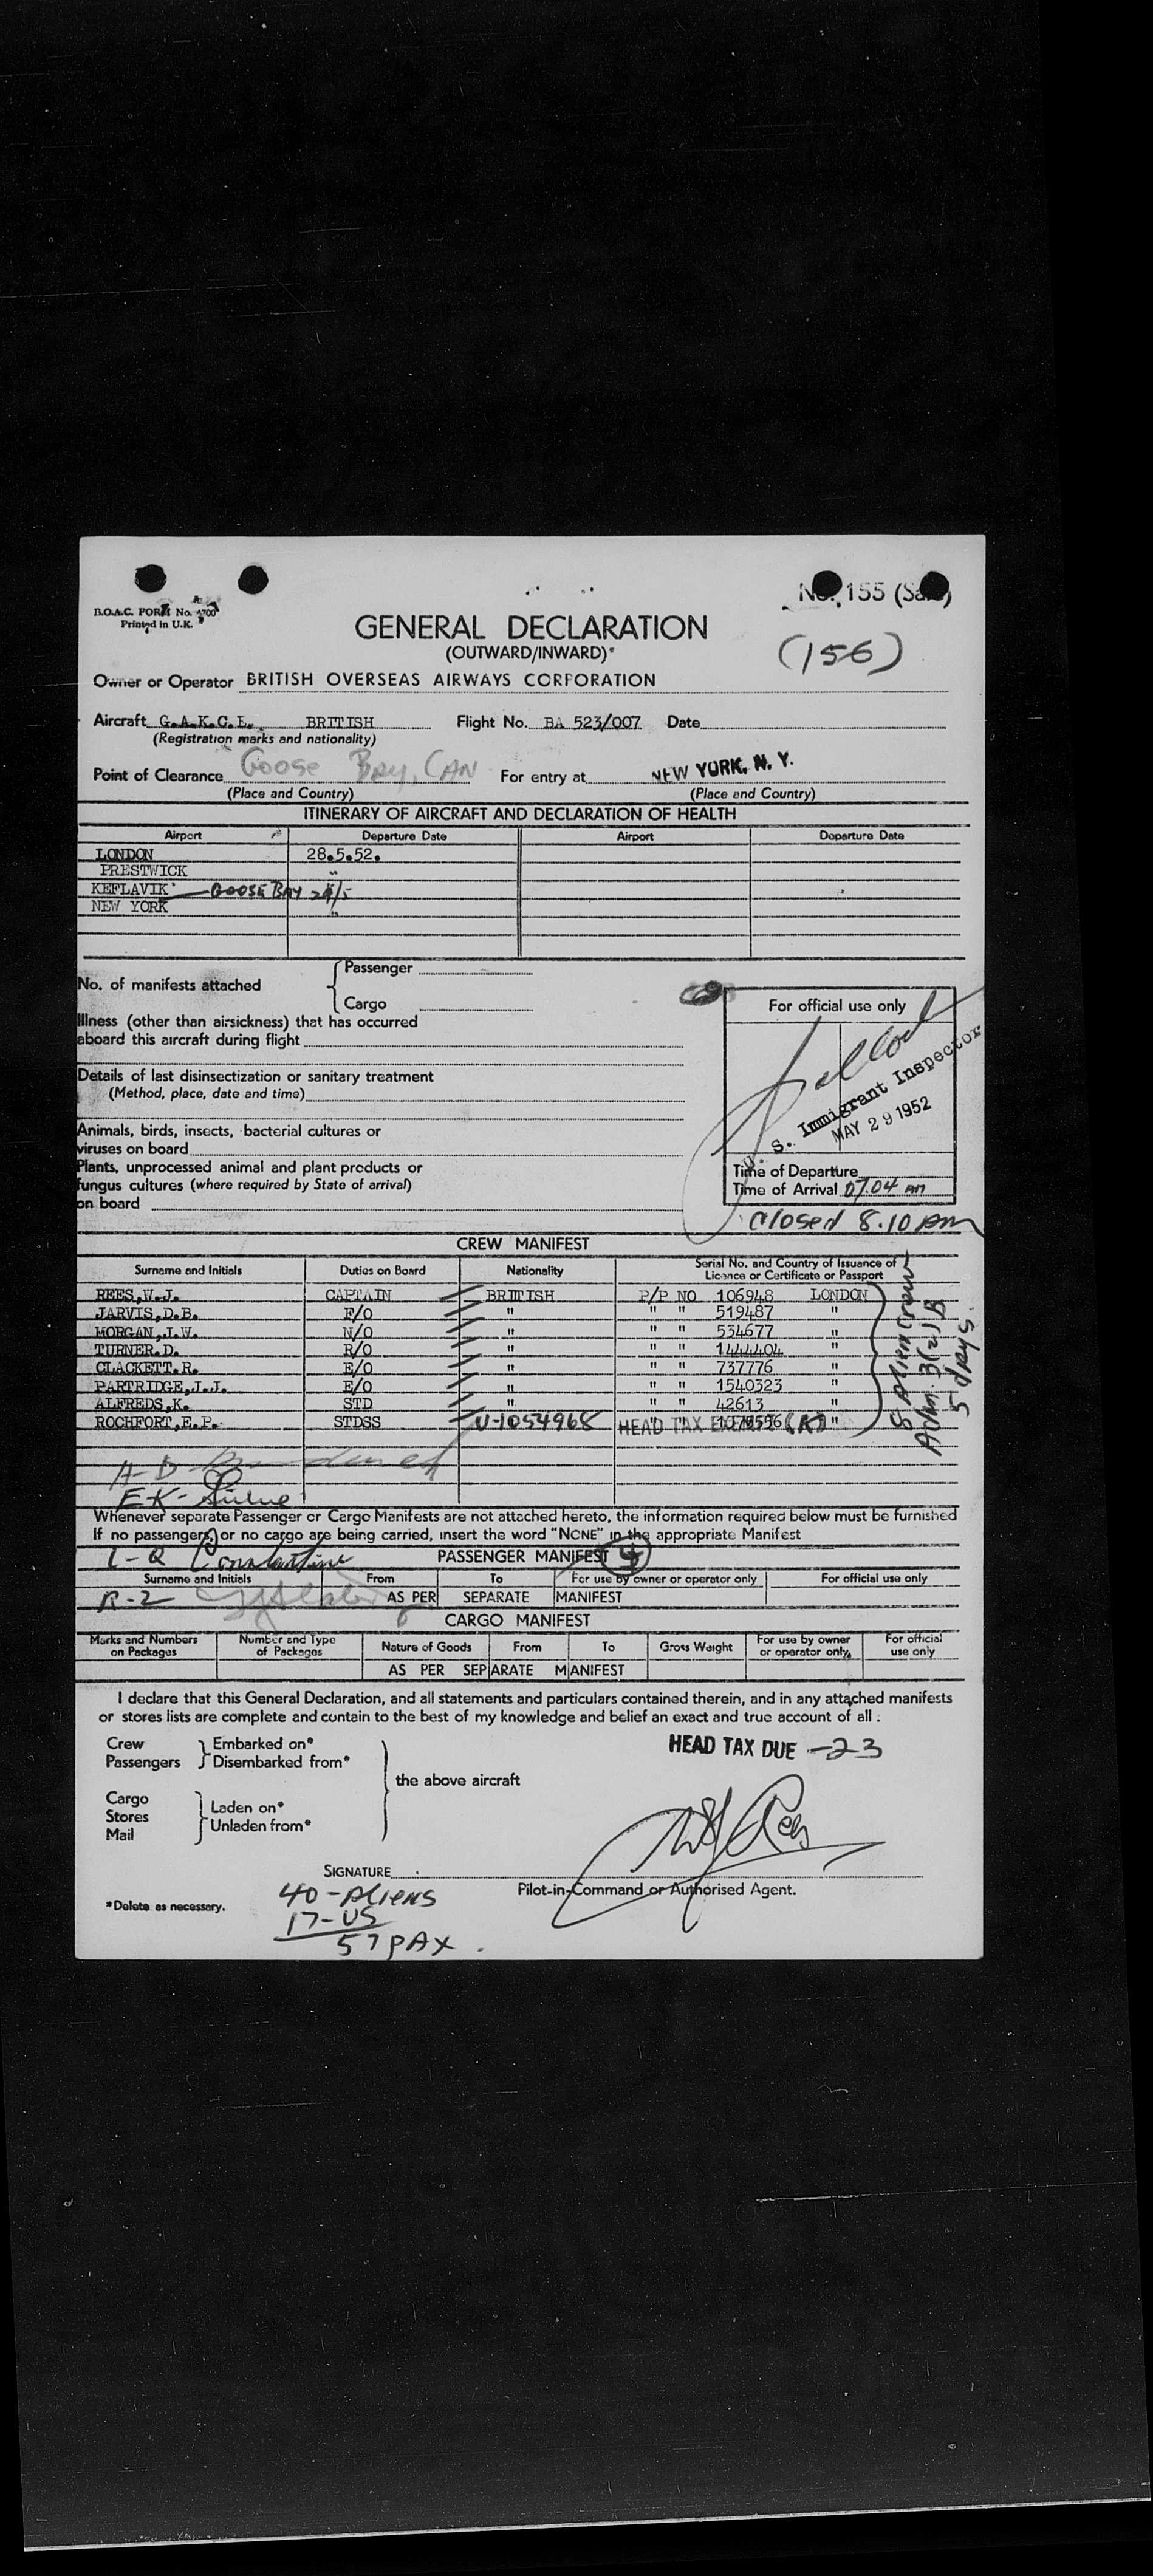 B.O.A.C. FORM No. 1700
Printed in U.K.
No. 155
GENERAL DECLARATION
(OUTWARD/INWARD)*
(156)
Owner or Operator BRITISH OVERSEAS AIRWAYS CORPORATION
Aircraft G.A.K.C.L. BRITISH Flight No. BA 523/007 Date
(Registration marks and nationality)
Point of Clearance Goose Bay, CAN For entry at NEW YORK, N. Y.
(Place and Country) (Place and Country)
ITINERARY OF AIRCRAFT AND DECLARATION OF HEALTH
Airport Departure Date Airport Departure Date
LONDON 28.5.52.
PRESTWICK "
KEFLAVIK GOOSE BAY
NEW YORK "
No. of manifests attached
Passenger
Cargo
Illness (other than airsickness) that has occurred
aboard this aircraft during flight
Details of last disinsectization or sanitary treatment
(Method, place, date and time)
Animals, birds, insects, bacterial cultures or
viruses on board
Plants, unprocessed animal and plant products or
fungus cultures (where required by State of arrival)
on board
For official use only
U. S. Immigrant Inspector
MAY 29 1952
Time of Departure
Time of Arrival 07.04 AM
Closed 8.10 AM
CREW MANIFEST
Surname and Initials Duties on Board Nationality Serial No. and Country of Issuance of
Licence or Certificate or Passport
REES,W.J. CAPTAIN BRITISH P/P NO 106948 LONDON
JARVIS,D.B. F/O " " " 519487 "
MORGAN,I.W. N/O " " " 534677 "
TURNER.D. R/O " " " 1444404 "
CLACKETT.R. E/O " " " 737776 "
PARTRIDGE,J.J. E/O " " " 1540323 "
ALFREDS,K. STD " " " 42613 "
ROCHFORT,E.P. STDSS U-1054968 HEAD TAX (A) "
8 alien crew
Adm. 3(2)B
5 days
A-D
E-K-
Whenever separate Passenger or Cargo Manifests are not attached hereto, the information required below must be furnished
If no passengers, or no cargo are being carried, insert the word "NONE" in the appropriate Manifest
L-Q Constantine PASSENGER MANIFEST 4
Surname and Initials From To For use by owner or operator only For official use only
R-Z AS PER SEPARATE MANIFEST
CARGO MANIFEST
Marks and Numbers
on Packages Number and Type
of Packages Nature of Goods From To Gross Weight For use by owner
or operator only. For official
use only
AS PER SEPARATE MANIFEST
I declare that this General Declaration, and all statements and particulars contained therein, and in any attached manifests
or stores lists are complete and contain to the best of my knowledge and belief an exact and true account of all :
Crew
Passengers
Embarked on*
Disembarked from*
Cargo
Stores
Mail
Laden on*
Unladen from*
the above aircraft
HEAD TAX DUE -23
SIGNATURE
Pilot-in-Command or Authorised Agent.
*Delete as necessary.
40-Aliens
17-US
57 PAX.